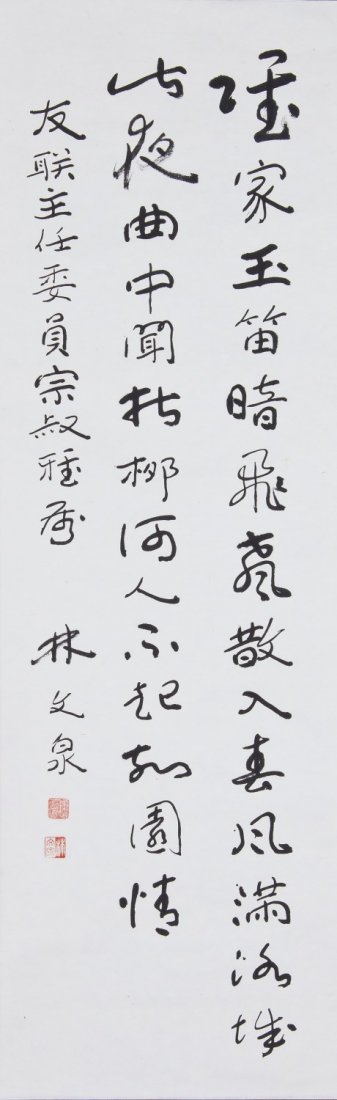 誰家玉笛暗飛聲散入春风滿洛城
此夜曲中聞折柳何人不起故園情
友联主任委員宗叔雅属
林文泉